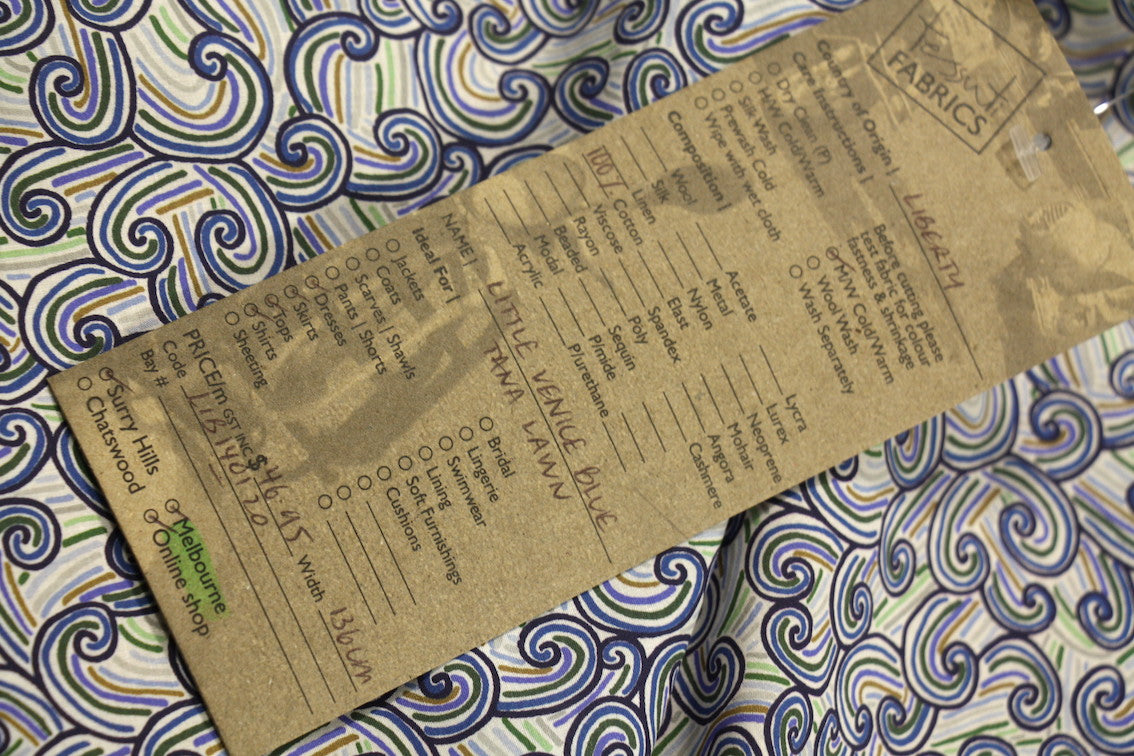 Tessuti
FABRICS
Country of Origin | LIBERTY
Care Instructions |
Before cutting please
test fabric for colour
fastness & shrinkage
Dry Clean (P)
H/W Cold/Warm
Silk Wash
Prewash Cold
Wipe with wet cloth
M/W Cold/Warm
Wool Wash
Wash Separately
Composition |
Wool
Silk
Linen
100% Cotton
Viscose
Rayon
Beaded
Modal
Acrylic
Acetate
Metal
Nylon
Elast
Spandex
Poly
Sequin
P/mide
P/urethane
Lycra
Lurex
Neoprene
Mohair
Angora
Cashmere
NAME | LITTLE VENICE BLUE
TANA LAWN
Ideal For |
Jackets
Coats
Scarves | Shawls
Pants | Shorts
Dresses
Skirts
Tops
Shirts
Sheeting
Bridal
Lingerie
Swimwear
Lining
Soft Furnishings
Cushions
PRICE/m GST INC $ 46.95 Width 136cm
Code LIB140120
Bay #
Surry Hills
Chatswood
Melbourne
Online shop